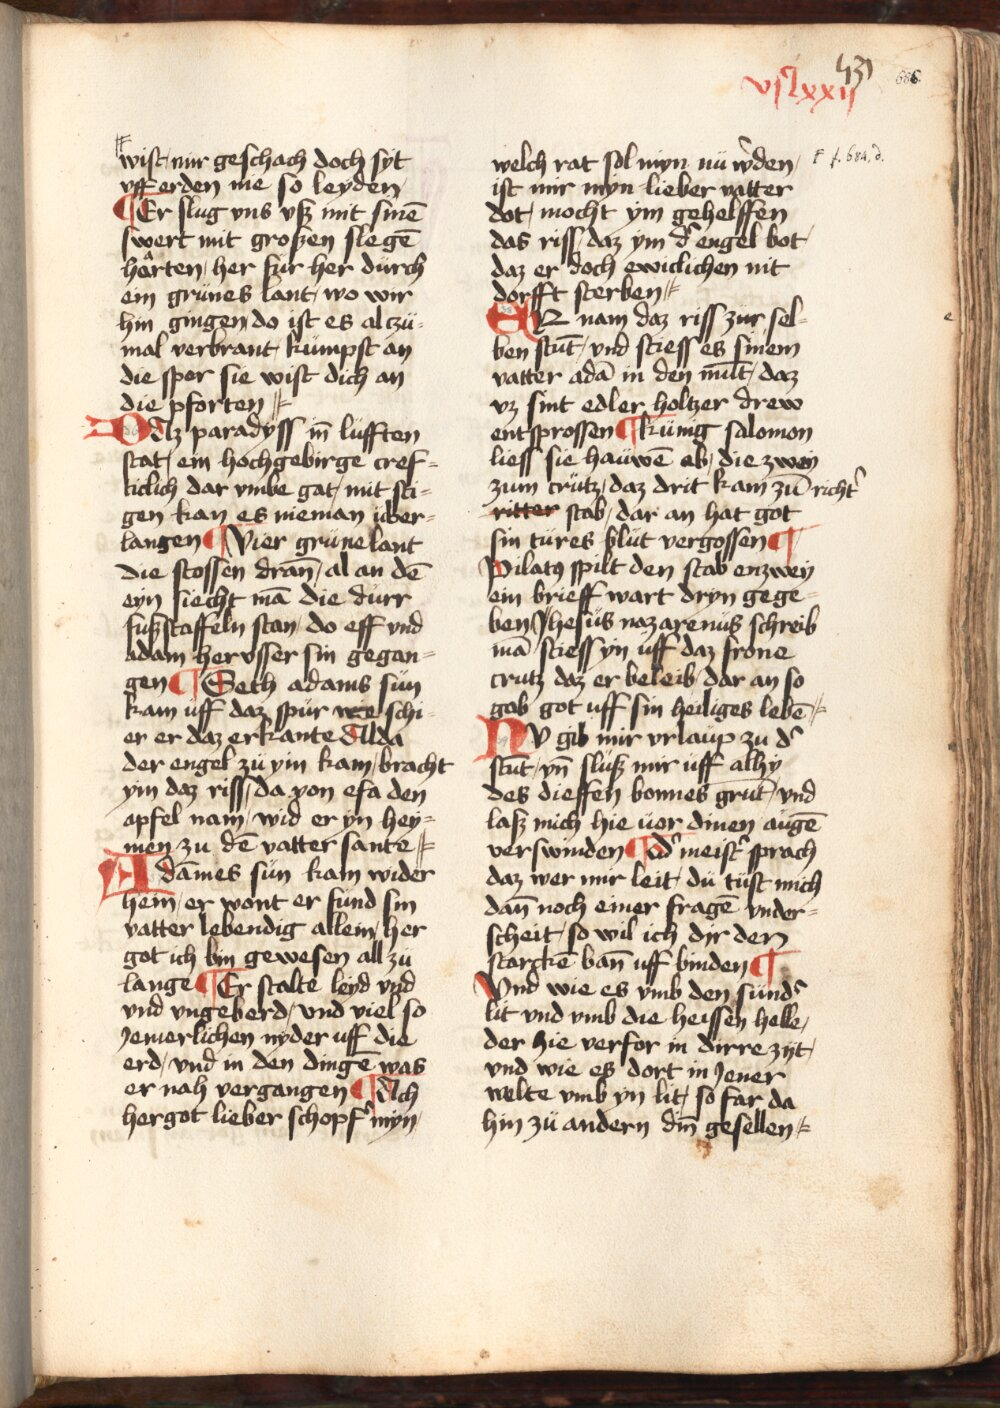 vjͨlxxij
431
686.
F f. 684, d.
wist / mir geschach doch syt
vff erden nie so leyden /
¶ Er slug vns vß mit sinē
swert mit großen slegē
hârten / her fur her dürch
ein grünes lant / wo wir
hin gingen / do ist es al zü-
mal verbrant / kümpst an
die sper sie wist dich an
die pforten
Daz paradyss in̄ lüfften
stat / ein hochgebirge cref-
ticlich dar vmbe gat / mit sti-
gen kan es nieman uber-
langen ¶ Vier grüne lant
die stossen dran̄ / al an dē
eyn siecht mā die dürr
fußstaffeln stan / do eff vnd
adam her vsser sin gegan-
gen ¶ Seth adams sün
kam uff daz spür we schi-
er er daz erkante Alda
der engel zü yin kam / bracht
ym daz riss / da von efa den
apfel nam / wid er yn hey-
men zu dē vatter sante
Adāmes sün kam wider
hein / er wont er fünd sin
vatter lebendig allein / her
got ich bin gewesen all zü
lange ¶ Er stalte leyd vnd
vnd vngeberd / vnd viel so
Jemerlichen nyder uff die
erd / vnd in den dingē was
er nah vergangen ¶ Ach
hergot lieber schopf' myn /
welch rat sol myn nü w'den /
ist mir myn lieber vatter
dot / mocht ym gehelffen
das riss / daz ym d' engel bot /
daz er doch ewiclichen nit
dorfft sterben
ER nam daz riss zür sel-
ben stūt / vnd stiess es sinem
vatter adā in den mūt / daz
vz sint edler holtzer drew
entsprossen ¶ künig salomon
liess sie hauwē ab / die zwey
zum crütz / daz drit kam zū richt'
ritter stab / dar an hat got
sin türes blüt vergossen ¶
Pilatꝰ spilt den stab enzwey
ein brieff wart dryn gege-
ben Jhesüs nazarenüs schreib
mā stiess yn uff daz frone
crutz daz er beleib / dar an so
gab got uff sin heiliges lebē
NV gib mir vrlaup zu d'
stūt / vn̄ sluß mir uff alhy
des dieffen bonnes grūt / vnd
laß mich hie uor dinen augē
verswinden ¶ d' meist' sprach
daz wer mir leit / dü tüst mich
dan̄ noch einer fragē vnder-
scheit / so wil ich dir den
starckē ban̄ uff binden ¶
Vnd wie es vmb den sünd'
lit vnd vmb die heissen helle /
der hie verfor in dirre zijt /
vnd wie es dort in Jener
welte vmb yn lit / so far da
hin zü andern din̄ gesellen